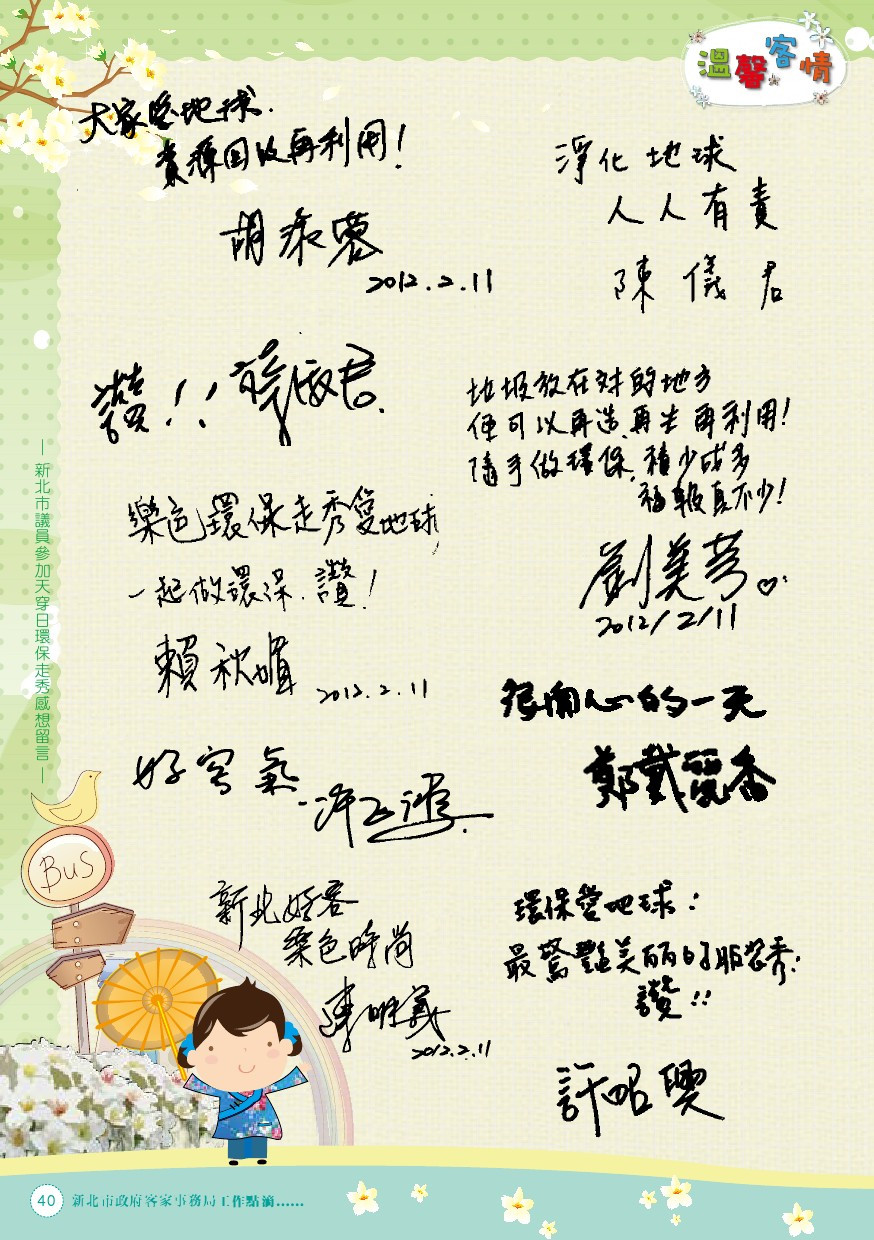 溫馨客情
大家愛地球.
資源回收再利用!
胡淑蓉
2012.2.11
淨化地球
人人有責
陳儀君
讚!!
垃圾放在對的地方
便可以再造.再生再利用!
隨手做環保,積少成多
福報真不少!
劉美芳
2012/2/11
樂色環保走秀愛地球,
一起做環保.讚!
賴秋媚
2012.2.11
很開心的一天
鄭戴麗香
好客氣
新北好客
樂色時尚
陳明義
2012.2.11
環保愛地球:
最驚艷美丽的服裝秀:
讚!!
許昭興
—新北市議員參加天穿日環保走秀感想留言—
BUS
40 新北市政府客家事務局工作點滴......